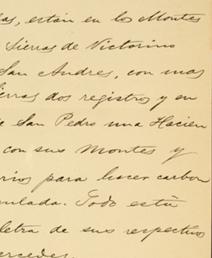 as, están en los Montes
Sierras de Victorino
San Andres, con mas
ierras dos registros y en
e San Pedro una Hacien
con sus Montes y
rios para hacer carbon
mulada. Todo está
letra de sus respectivo
mercedes.